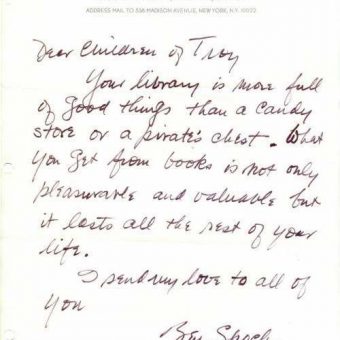 ADDRESS MAIL TO 538 MADISON AVENUE, NEW YORK, N.Y. 10022
Dear Children of Troy
Your library is more full
of good things than a candy
store or a pirate's chest. What
you get from books is not only
pleasurable and valuable but
it lasts all the rest of your
life.
I send my love to all of
you
Ben Spock